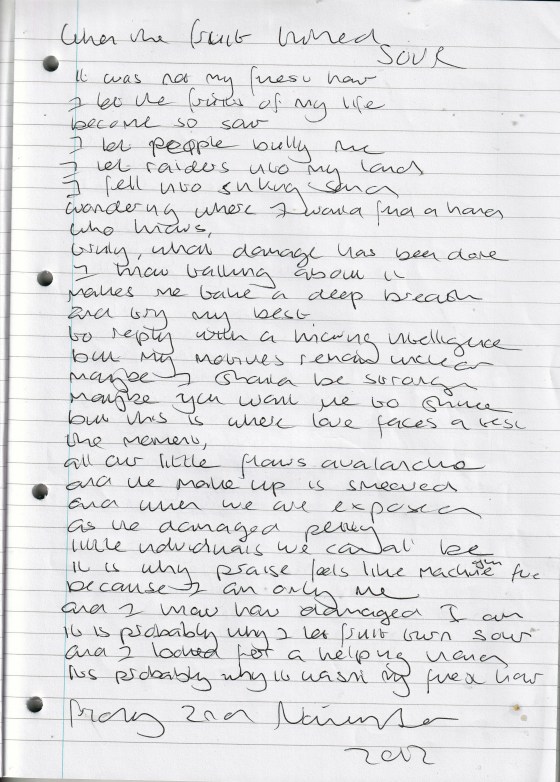 When the fruit turned
SOUR
it was not my finest hour
I let the fruits of my life
become so sour
I let people bully me
I let raiders into my land
I fell into sinking sand
wondering where I would find a hand
who knows,
truly, what damage has been done
I know talking about it
makes me take a deep breath
and try my best
to reply with a knowing intelligence
but my motives remain unclear
maybe I should be stronger
maybe you want me to shine
but this is where love faces a test
the moment,
all our little flaws avalanche
and the make up is smeared
and when we are exposed
as the damaged petty
little individuals we can all be
it is why praise feels like machine gun fire
because I am only me
and I know how damaged I am
it is probably why I let fruit turn sour
and I looked for a helping hand
its probably why it wasnt my finest hour
Friday 2nd November
2012